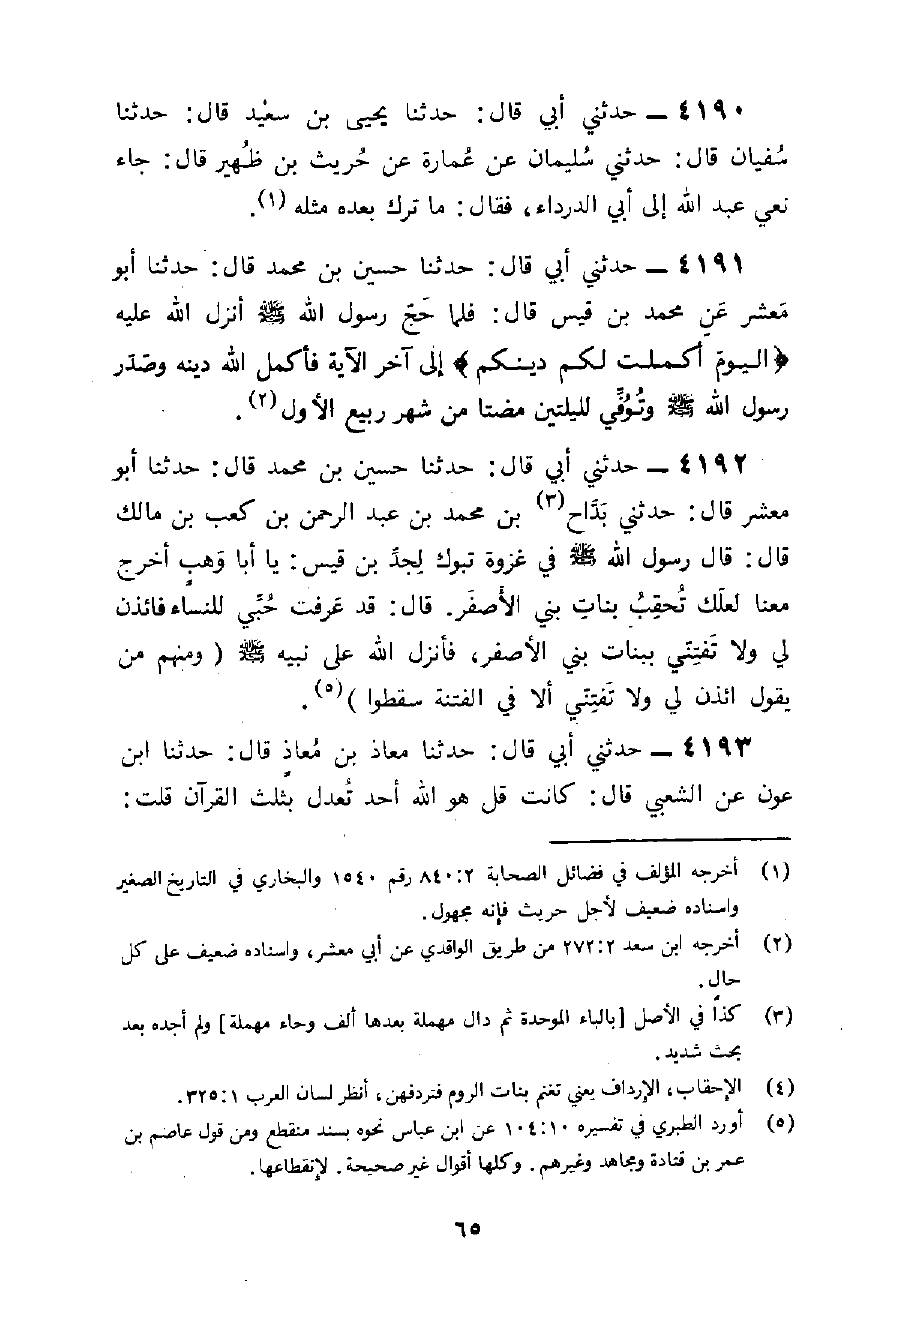 ٤١٩٠ ــ حدثني أبي قال: حدثنا يحيى بن سعيْد قال: حدثنا
سُفيان قال: حدثني سُليمان عن عُمارة عن حُريث بن ظُهير قال: جاء
نعي عبد الله إلى أبي الدرداء، فقال: ما ترك بعده مثله (١).
٤١٩١ ــ حدثني أبي قال: حدثنا حسين بن محمد قال: حدثنا أبو
مَعشر عَن محمد بن قيس قال: فلما حَجّ رسول الله ﷺ أنزل الله عليه
﴿اليومَ أكملت لكم دينكم﴾ إلى آخر الآية فأكمل الله دينه وصَدَر
رسول الله ﷺ وتُوُفِّي لليلتين مضتا من شهر ربيع الأول(٢).
٤١٩٢ ــ حدثني أبي قال: حدثنا حسين بن محمد قال: حدثنا أبو
معشر قال: حدثني بَدَّاح(٣) بن محمد بن عبد الرحمن بن كعب بن مالك
قال: قال رسول الله ﷺ في غزوة تبوك لِجدِّ بن قيس: يا أبا وَهبٍ أخرج
معنا لعلّك تُحقِبُ بناتِ بني الأصفَر. قال: قد عَرفت حُبّي للنساء فائذن
لي ولا تَفتِنّي ببنات بني الأصفر، فأنزل الله على نبيه ﷺ ( ومنهم من
يقول ائذن لي ولا تَفتِنّي ألا في الفتنة سقطوا )(٥).
٤١٩٣ ــ حدثني أبي قال: حدثنا معاذ بن مُعاذٍ قال: حدثنا ابن
عون عن الشعبي قال: كانت قل هو الله أحد تُعدل بثلث القرآن قلت:
(١) أخرجه المؤلف في فضائل الصحابة ٨٤٠:٢ رقم ١٥٤٠ والبخاري في التاريخ الصغير
واسناده ضعيف لأجل حريث فإنه مجهول.
(٢) أخرجه ابن سعد ٢٧٢:٢ من طريق الواقدي عن أبي معشر، واسناده ضعيف على كل
حال.
(٣) كذا في الأصل [بالباء الموحدة ثم دال مهملة بعدها ألف وحاء مهملة] ولم أجده بعد
بحث شديد.
(٤) الإحقاب، الإرداف يعني تغنم بنات الروم فتردفهن، أنظر لسان العرب ٣٢٥:١.
(٥) أورد الطبري في تفسيره ١٠٤:١٠ عن ابن عباس نحوه بسند منقطع ومن قول عاصم بن
عمر بن قتادة ومجاهد وغيرهم. وكلها أقوال غير صحيحة. لإنقطاعها.
٦٥